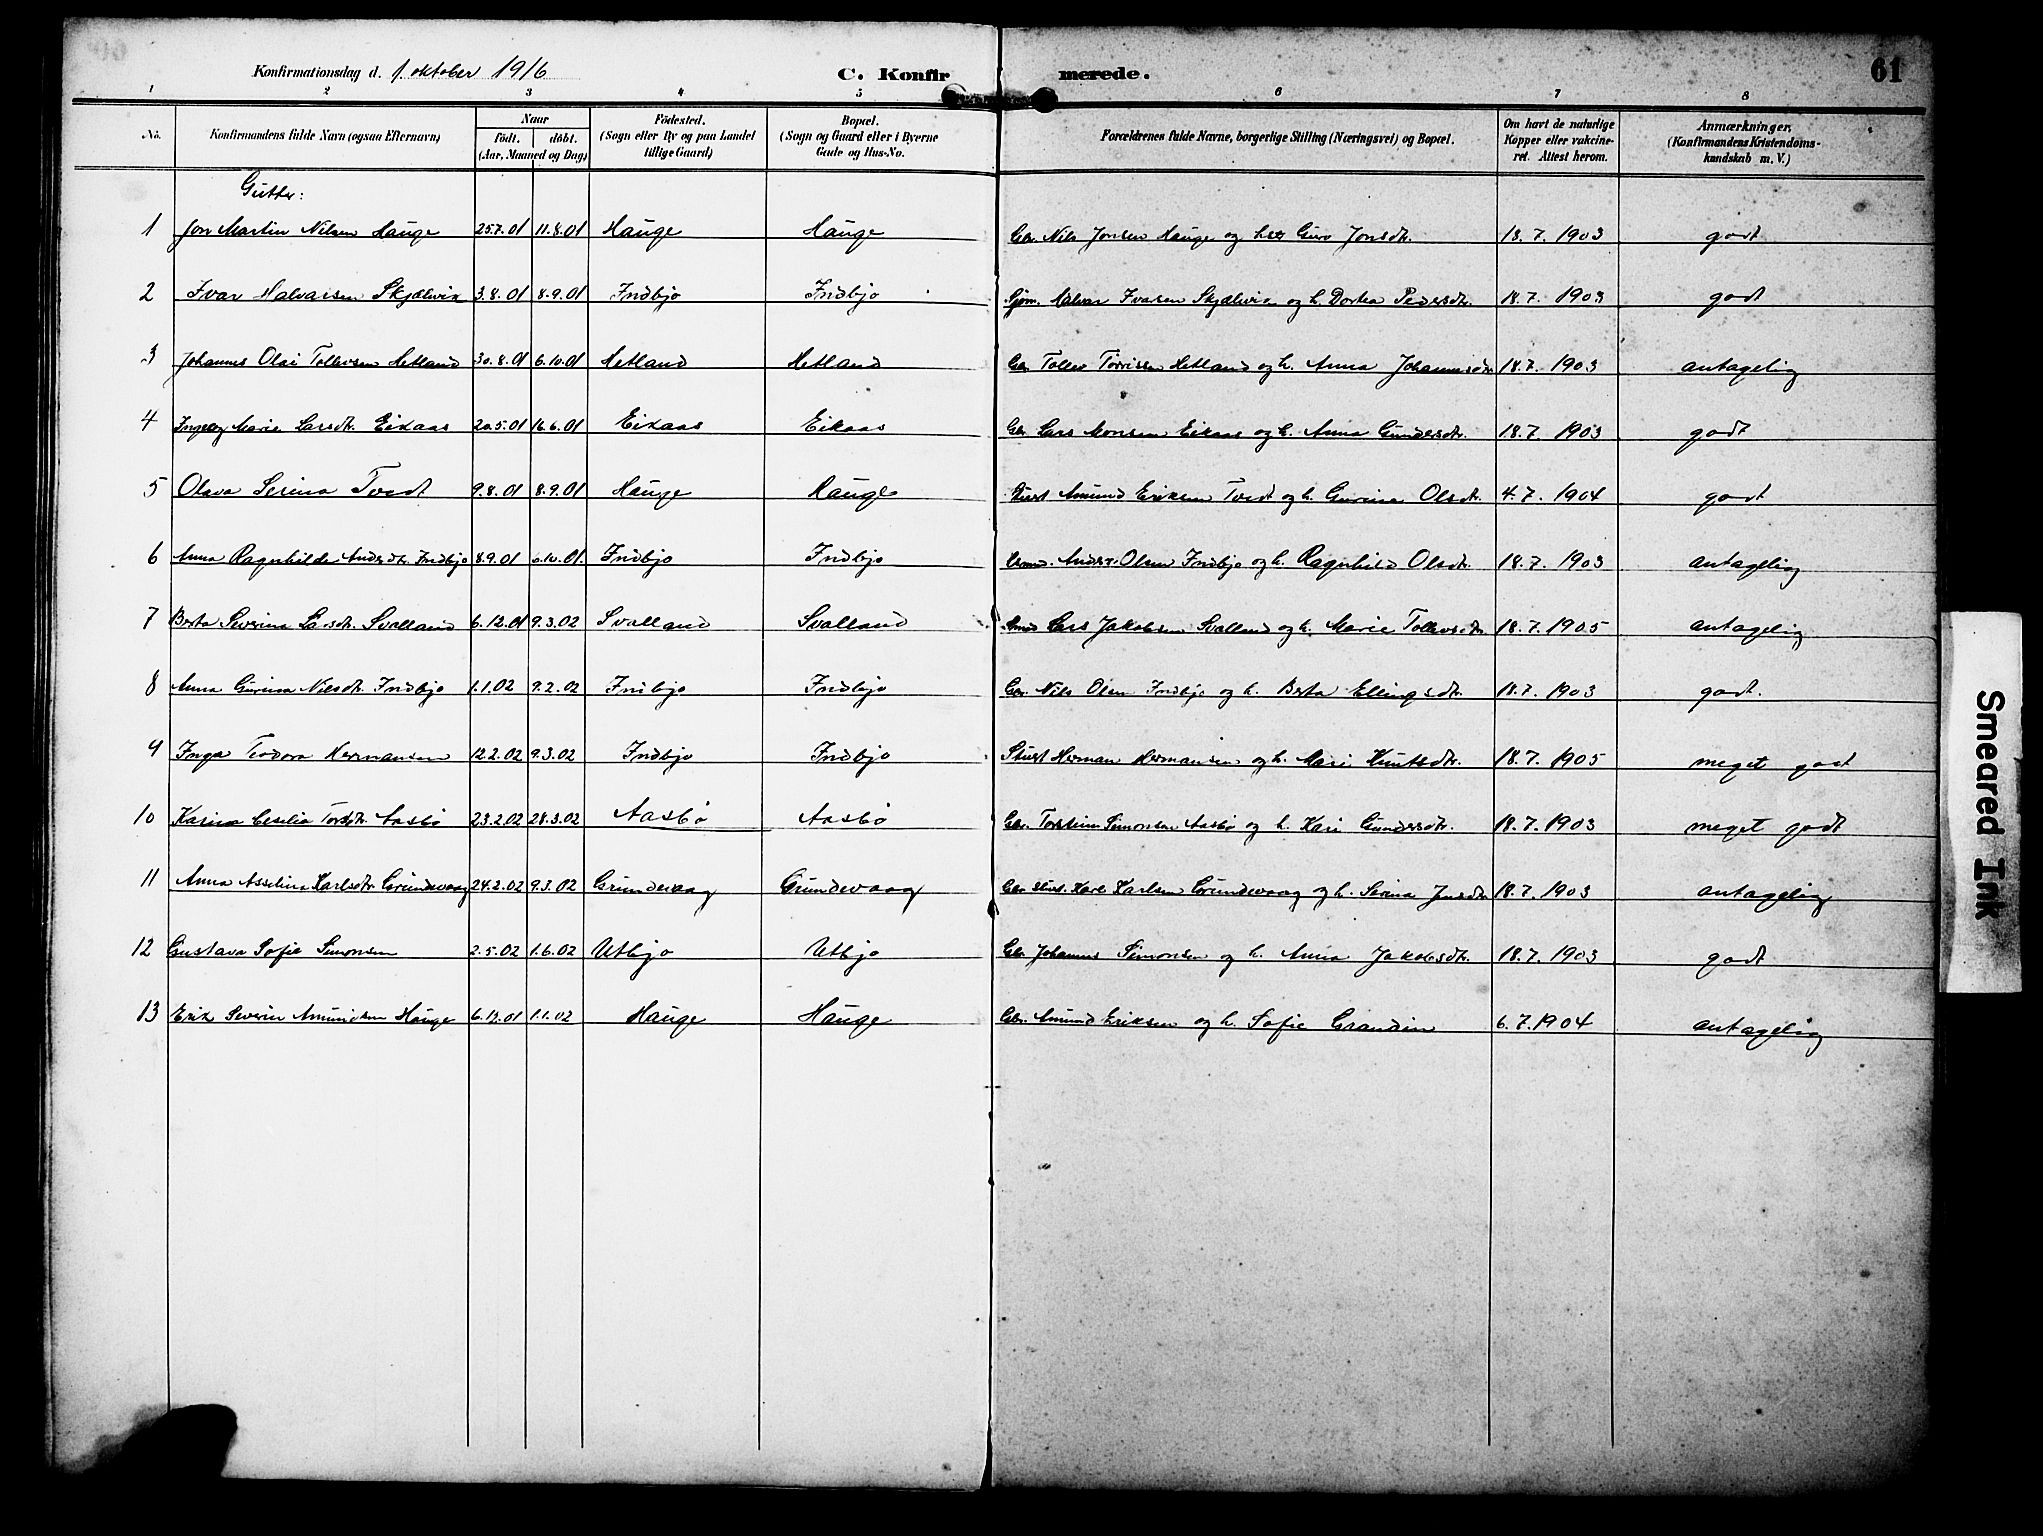 Konfirmationsdag d. 1. oktober 1916 C. Konfirmerede. 61
1 2 3 4 5 6 7 8
No. Konfirmandens fulde Navn (ogsaa Efternavn) Naar født. døbt. (Aar, Maaned og Dag) Fødested. (Sogn eller By og paa Landet tillige Gaard) Bopæl. (Sogn og Gaard eller i Byerne Gade og Hus-No. Forældrenes fulde Navne, borgerlige Stilling (Næringsvei) og Bopæl. Om havt de naturlige Kopper eller vakcineret. Attest herom. Anmærkninger. (Konfirmandens Kristendomskundskab m. V.)
Gutter:
1 Jon Martin Nilsen Hauge 25.7.01 11.8.01 Hauge Hauge Gbr. Nils Jonsen Hauge og hst Guro Jonsdtr. 18.7.1903 godt
2 Ivar Halvarsen Skjælvik 3.8.01 8.9.01 Indbjo Indbjo Sjøm. Halvar Ivarsen Skjælvik og h. Dortea Pedersdtr. 18.7.1903 godt
3 Johannes Olai Tollevsen Hetland 30.8.01 6.10.01 Hetland Hetland Gbr. Tollev Torrisen Hetland og h. Anna Johannesdtr 18.7.1903 antagelig
4 Ingeborg Marie Larsdtr. Eikaas 20.5.01 16.6.01 Eikaas Eikaas Gbr. Lars Monsen Eikaas og h. Anna Gundersdtr. 18.7.1903 godt
5 Olava Serina Tvedt 9.8.01 8.9.01 Hauge Hauge Amund Eriksen Tvedt og h. Gurine Olsdtr. 4.7.1904 godt
6 Anna Ragnhilda Andersdtr. Indbjo 8.9.01 6.10.01. Indbjo Indbjo Anders Olsen Indbjo og h. Ragnhild Olsdtr. 18.7.1903 antagelig
7 Berta Severina Larsdtr. Svalland 6.12.01 9.3.02 Svalland Svalland Lars Jakobsen Svalland og h. Marie Tollevsdtr 18.7.1905 antagelig
8 Anna Gurina Nilsdtr. Indbjo 1.1.02 9.2.02 Indbjo Indbjo Gbr. Nils Olsen Indbjo og h. Berta Ellingsdtr. 18.7.1903 godt.
9 Inga Teodora Hermansen 12.2.02 9.3.02 Indbjo Indbjo Herman Hermansen og h. Mari Knutsdtr. 18.7.1905 meget godt
10 Karina Cesilia Aasbø 23.2.02 28.3.02 Aasbø Aasbø Gbr. Torstein Simonsen Aasbø og h. Kari Gundersdtr. 18.7.1903 meget godt
11 Anna Asselina Karlsdtr. Grundevaag 24.2.02 9.3.02 Grundevaag Grundevaag Gbr. Karl Karlsen Grundevaag og h. Serina 18.7.1903 antagelig
12 Gustava Sofie Simonsen 2.5.02 1.6.02 Utbjo Utbjo Gbr. Johannes Simonsen og h. Anna Jakobsdtr. 18.7.1903 godt
13 Erik Severin Amundsen Hauge 1.1.02 Hauge Hauge Gbr. Amund Eriksen og h. Sofie Grandin 6.7.1904 antagelig
Smeared Ink